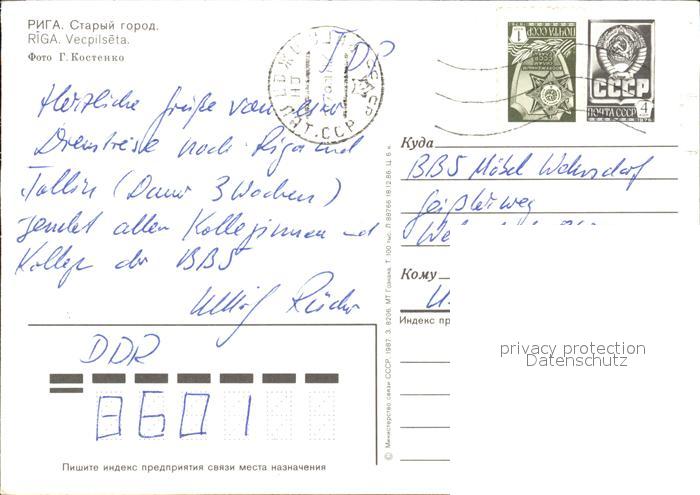 РИГА. Старый город.
RĪGA. Vecpilsēta.
Фото Г. Костенко
DDR
Herzliche Grüße von einer
Dienstreise nach Riga und
Tallin (Dauer 3 Wochen)
sendet allen Kolleginnen und
Kollegen der BBS
DDR
8601
Пишите индекс предприятия связи места назначения
© Министерство связи СССР. 1987. З. 8206. МТ Гознака. Т. 100 тыс. Л 88766 18.12.86. Ц. 6 к.
ПОЧТА СССР
1
СССР
ПОЧТА СССР
4
ЛАТ. ССР
Куда
BBS Möbel Wehrsdorf
Geißlerweg
Кому
Индекс пр
privacy protection
Datenschutz